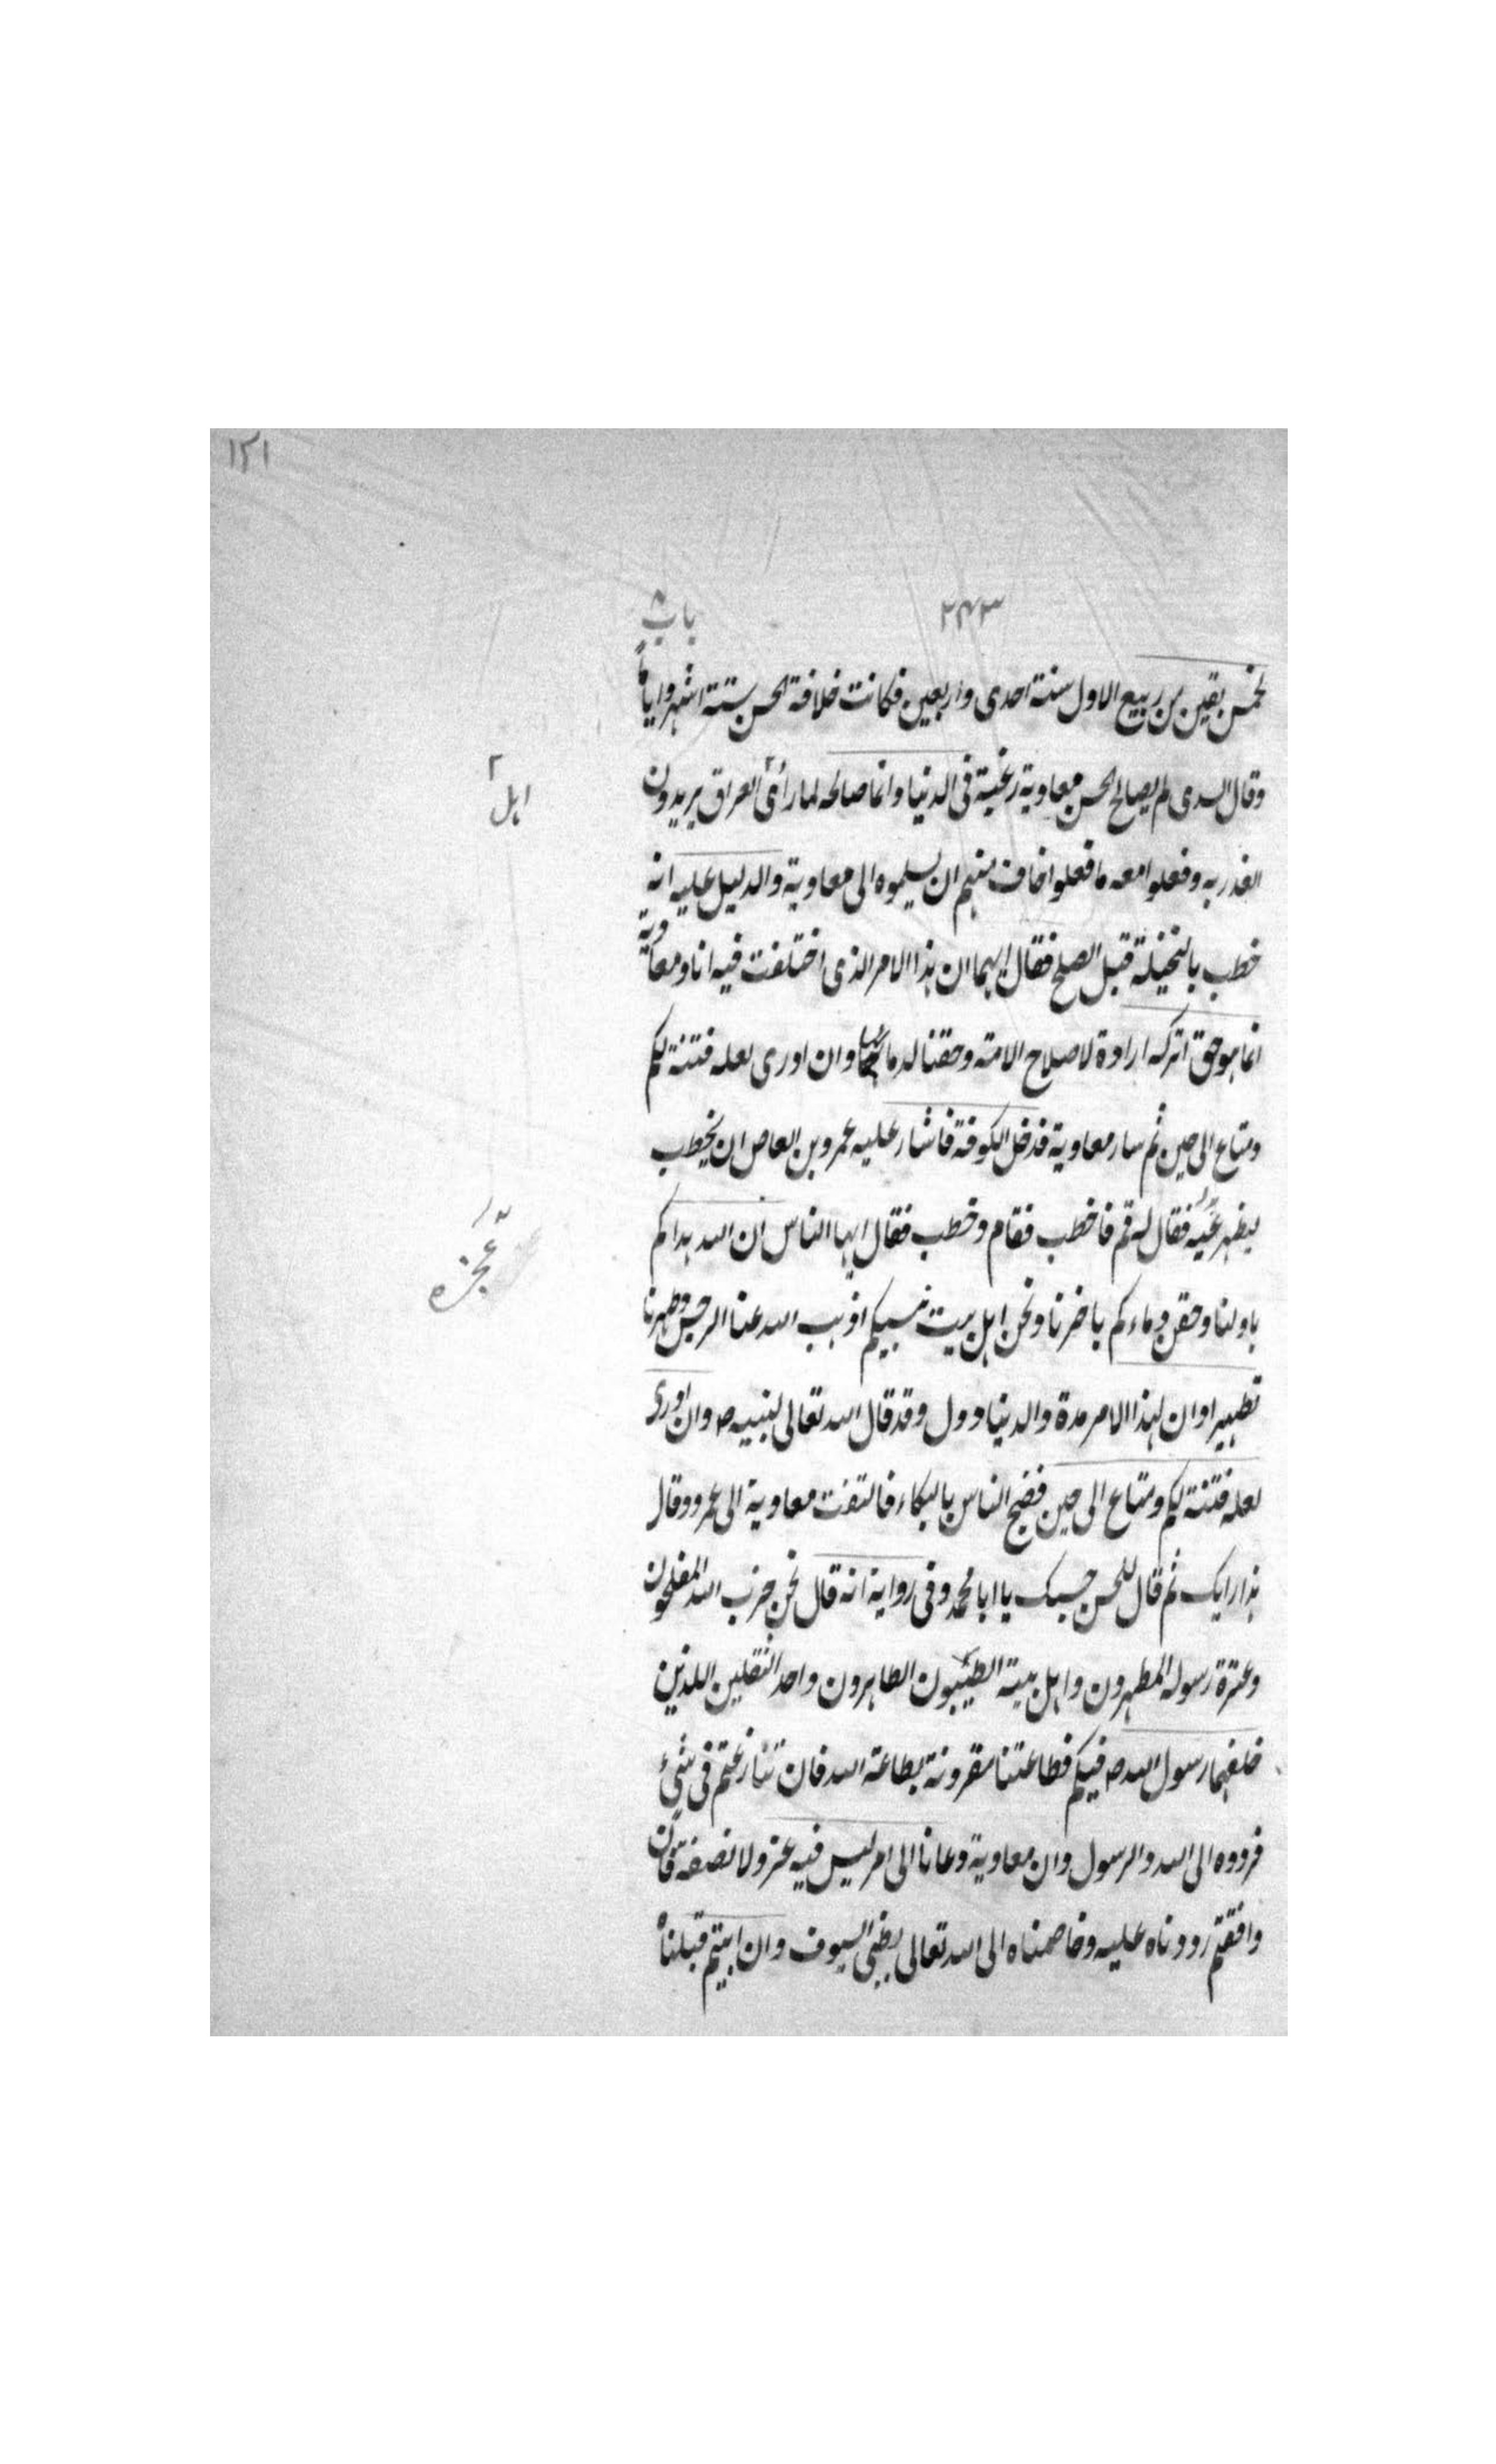 ١٢١
٢٤٣
باب ٨
لخمس بقين من ربيع الاول سنة احدى واربعين فكانت خلافة الحسن ستة اشهر واياما
وقال السدى لم يصالح الحسن معاوية رغبة فى الدنيا وانما صالحه لما رأى العراق يريدون
اهل ٢
الغدر به وفعلوا معه ما فعلوا خاف منهم ان يسلموه الى معاوية والدليل عليه انه
خطب بالنخيلة قبل الصلح فقال ايها ان هذا الامر الذى اختلفت فيه انا ومعاوية
انما هو حق اتركه ارادة لاصلاح الامة وحقنا لدمائها وان ادرى لعله فتنة لكم
ومتاع الى حين ثم سار معاوية فدخل الكوفة فاشار عليه عمرو بن العاص ان يخطب
ليظهر عيّه فقال له قم فاخطب فقام وخطب فقال ايها الناس ان الله هداكم
عجزه
باولنا وحقن دماءكم باخرنا ونحن اهل بيت نبيكم اذهب الله عنا الرجس وطهرنا
تطهيرا وان لهذا الامر مدة والدنيا دول وقد قال الله تعالى لنبيه ص وان ادرى
لعله فتنة لكم ومتاع الى حين فضج الناس بالبكاء فالتفت معاوية الى عمرو وقال
هذا رايك ثم قال للحسن حسبك يا ابا محمد وفى رواية انه قال نحن حزب الله المفلحون
وعترة رسوله المطهرون واهل بيته الطيّبون الطاهرون واحد الثقلين اللذين
خلفهما رسول الله ص فيكم فطاعتنا مقرونة بطاعة الله فان تنازعتم فى شئ
فردوه الى الله والرسول وان معاوية دعانا الى امر ليس فيه عز ولا نصفة فان
وافقتم رددناه عليه وخاصمناه الى الله تعالى بظبى السيوف وان ابيتم قبلناه